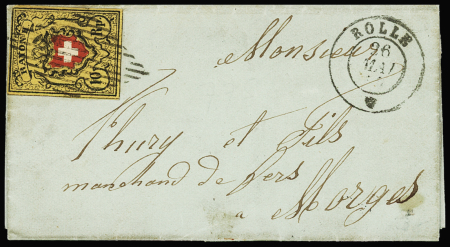 RAYON II
10 Rp.
ROLLE
26
MAI
Monsieur
Thury et Fils
marchand de fers
a Morges